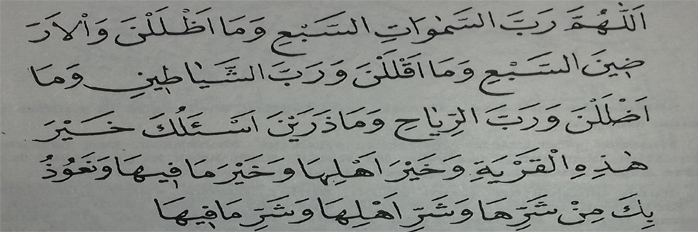 اَللّٰهُمَّ رَبَّ السَّمٰوَاتِ السَّبْعِ وَمَا اَظْلَلْنَ وَالْاَرَ
ضِينَ السَّبْعِ وَمَا اَقْلَلْنَ وَرَبَّ الشَّيَاطِينِ وَمَا
اَضْلَلْنَ وَرَبَّ الرِّيَاحِ وَمَا ذَرَيْنَ اَسْئَلُكَ خَيْرَ
هٰذِهِ الْقَرْيَةِ وَخَيْرَ اَهْلِهَا وَخَيْرَ مَا فِيهَا وَنَعُوذُ
بِكَ مِنْ شَرِّهَا وَشَرِّ اَهْلِهَا وَشَرِّ مَا فِيهَا